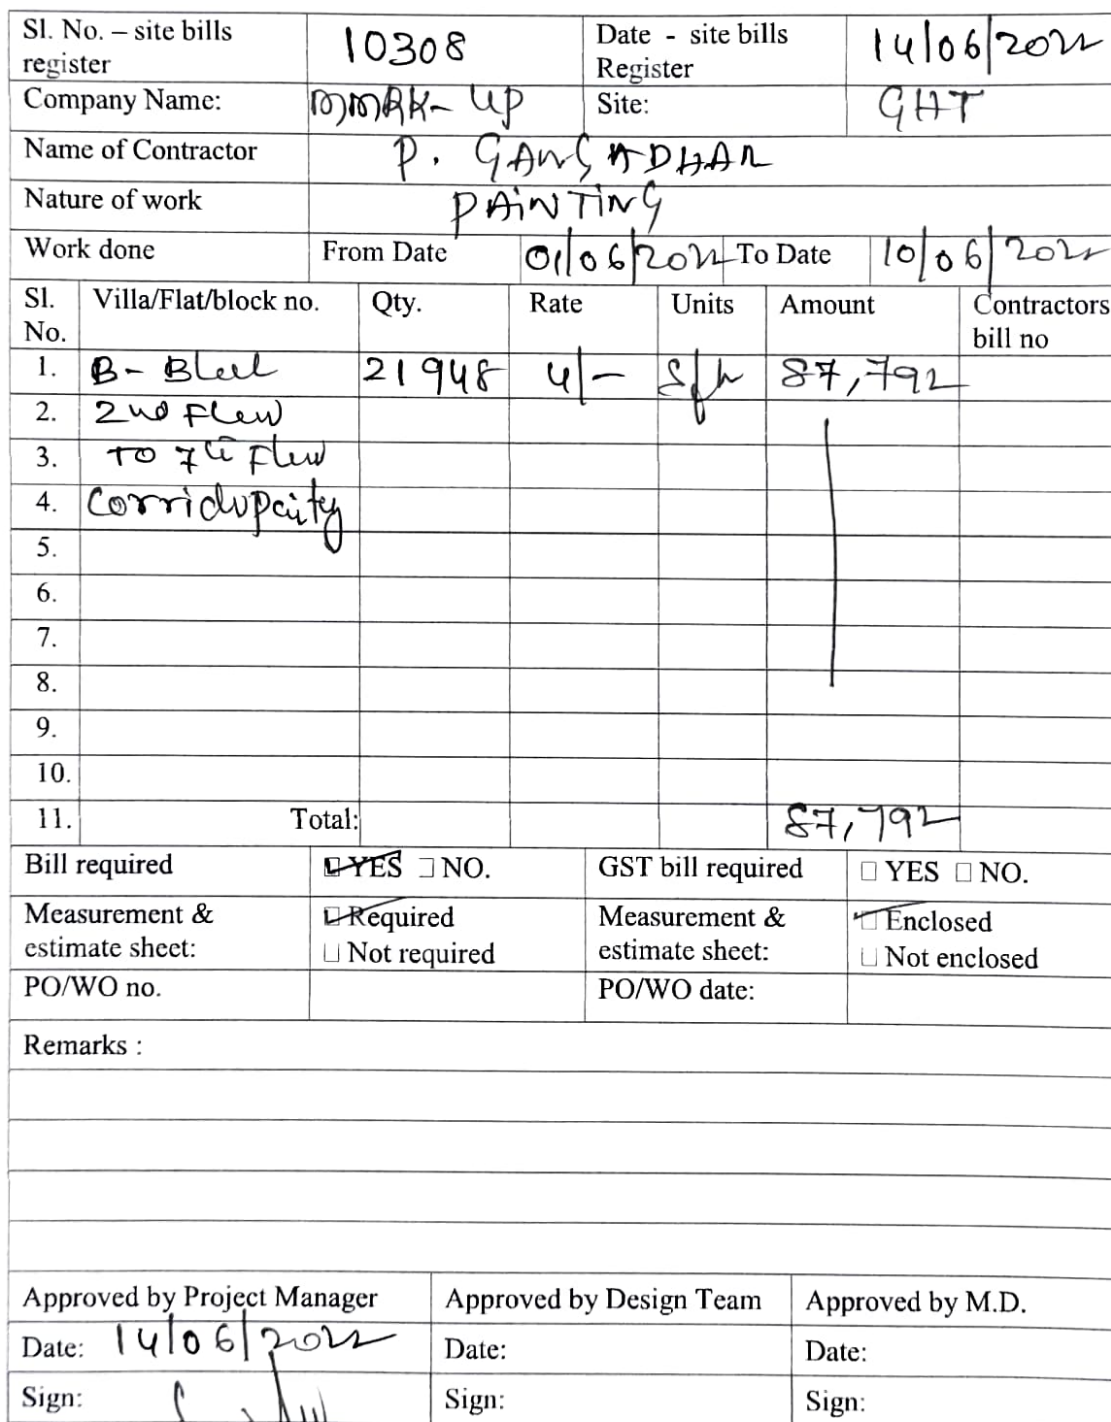 Sl. No. – site bills register 10308 Date - site bills Register 14/06/2022
Company Name: MMRK-UP Site: GHT
Name of Contractor P. GANGADHAR
Nature of work PAINTING
Work done From Date 01/06/2022 To Date 10/06/2022
Sl. No. Villa/Flat/block no. Qty. Rate Units Amount Contractors bill no
1. B- Block 21948 4/- Sft 87,792
2. 2nd Floor
3. TO 7th Floor
4. Corridor
5.
6.
7.
8.
9.
10.
11. Total: 87,792
Bill required YES NO. GST bill required YES NO.
Measurement & estimate sheet: Required Measurement & estimate sheet: Enclosed
Not required Not enclosed
PO/WO no. PO/WO date:
Remarks :
Approved by Project Manager Approved by Design Team Approved by M.D.
Date: 14/06/2022 Date: Date:
Sign: Sign: Sign: